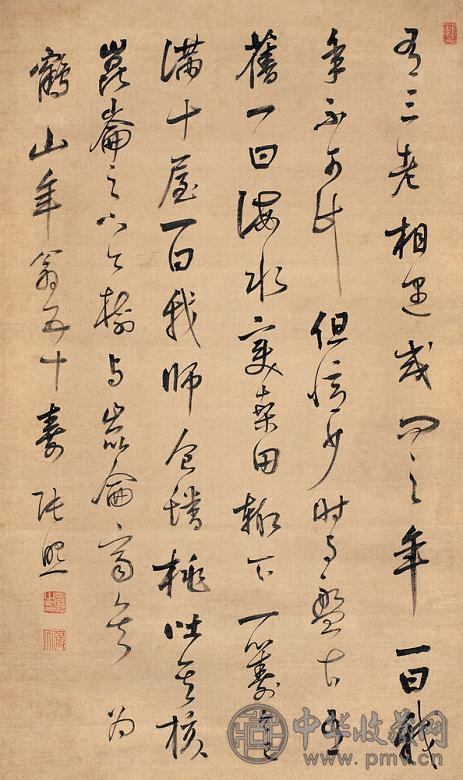 有三老相遇或問之年一曰我
年不可計但憶少時与盤古有
舊一曰海水变桑田輒下一籌已
滿十屋一曰我師食蟠桃吐其核
崑崙之下今与崑崙齊矣 为
鶴山年翁五十壽 張照
中华收藏网
www.pmv.cn